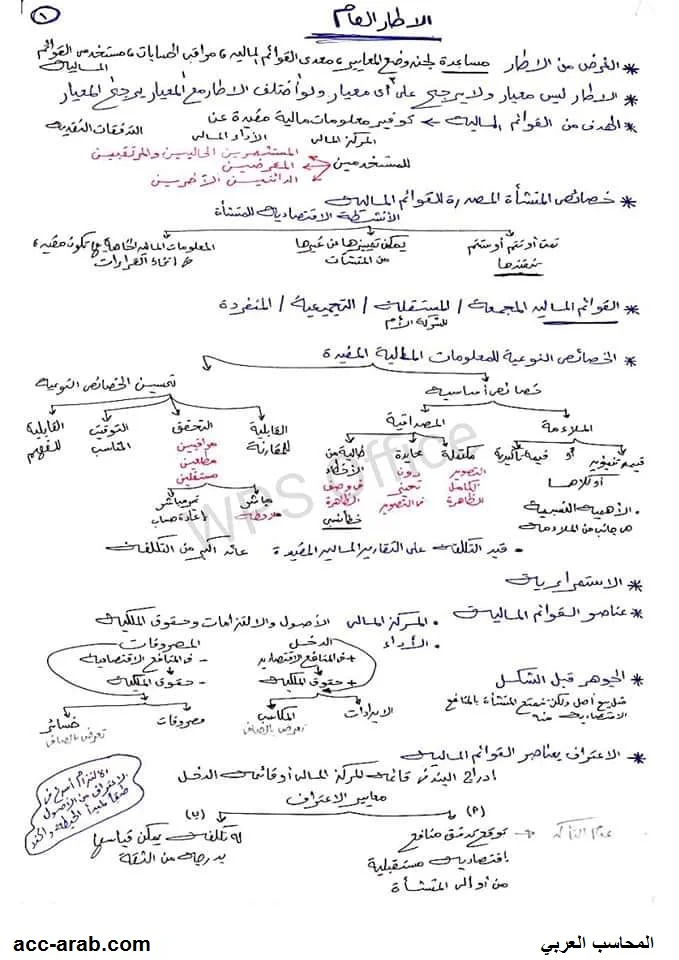 ١
الاطار العام
* الغرض من الاطار مساعدة لجنة وضع المعايير، معدى القوائم المالية، مراقبى الحسابات، مستخدمى القوائم المالية
* الاطار ليس معيار ولا يرجح على أى معيار ولو اختلف الاطار مع المعيار يرجح المعيار
* الهدف من القوائم المالية ← توفير معلومات مالية مفيدة عن
المركز المالى الأداء المالى التدفقات النقدية
للمستخدمين
المستثمرين الحاليين والمرتقبين
المقرضين
الدائنين الآخرين
* خصائص المنشأة المصدرة للقوائم المالية
الأنشطة الاقتصادية للمنشأة
تمت أو تتم أو ستتم يمكن تمييزها عن غيرها المعلومات المالية الخاصة بها تكون مفيدة
تنفيذها من المنشآت فى اتخاذ القرارات
* القوائم المالية المجمعة / المستقلة / التجميعية / المنفردة
للشركة الأم
* الخصائص النوعية للمعلومات المالية المفيدة
خصائص أساسية تحسين الخصائص النوعية
الملاءمة المصداقية القابلية للمقارنة التحقق التوقيت المناسب القابلية للفهم
قيمة تنبؤية أو قيمة تأكيدية
أو كلاهما
مكتملة محايدة خالية من الأخطاء
التصوير الكامل للظاهرة
دون تحيز فى التصوير
فى وصف الظاهرة
مراقبين
مستقلين
مباشر غير مباشر
ملاحظة إعادة حساب
- الأهمية النسبية
هى جانب من الملاءمة
• قيد التكلفة على التقارير المالية المفيدة عائد أكبر من التكلفة
* الاستمرارية
* عناصر القوائم المالية • المركز المالى الأصول والالتزامات وحقوق الملكية
• الأداء الدخل المصروفات
+ فى المنافع الاقتصادية - فى المنافع الاقتصادية
+ حقوق الملكية - حقوق الملكية
الايرادات المكاسب مصروفات خسائر
تعرض بالصافى تعرض بالصافى
* الجوهر قبل الشكل
الاقتصادية منه
* الاعتراف بعناصر القوائم المالية
ادراج البند فى قائمة المركز المالى أو قائمة الدخل
معايير الاعتراف
(أ) (ب)
توقع تدفق منافع
اقتصادية مستقبلية
من أو الى المنشأة
له تكلفة يمكن قياسها
بدرجة من الثقة
الالتزام أسرع فى
الاعتراف من الأصول
طبقاً لمبدأ الحيطة والحذر
WPS Office
acc-arab.com المحاسب العربي